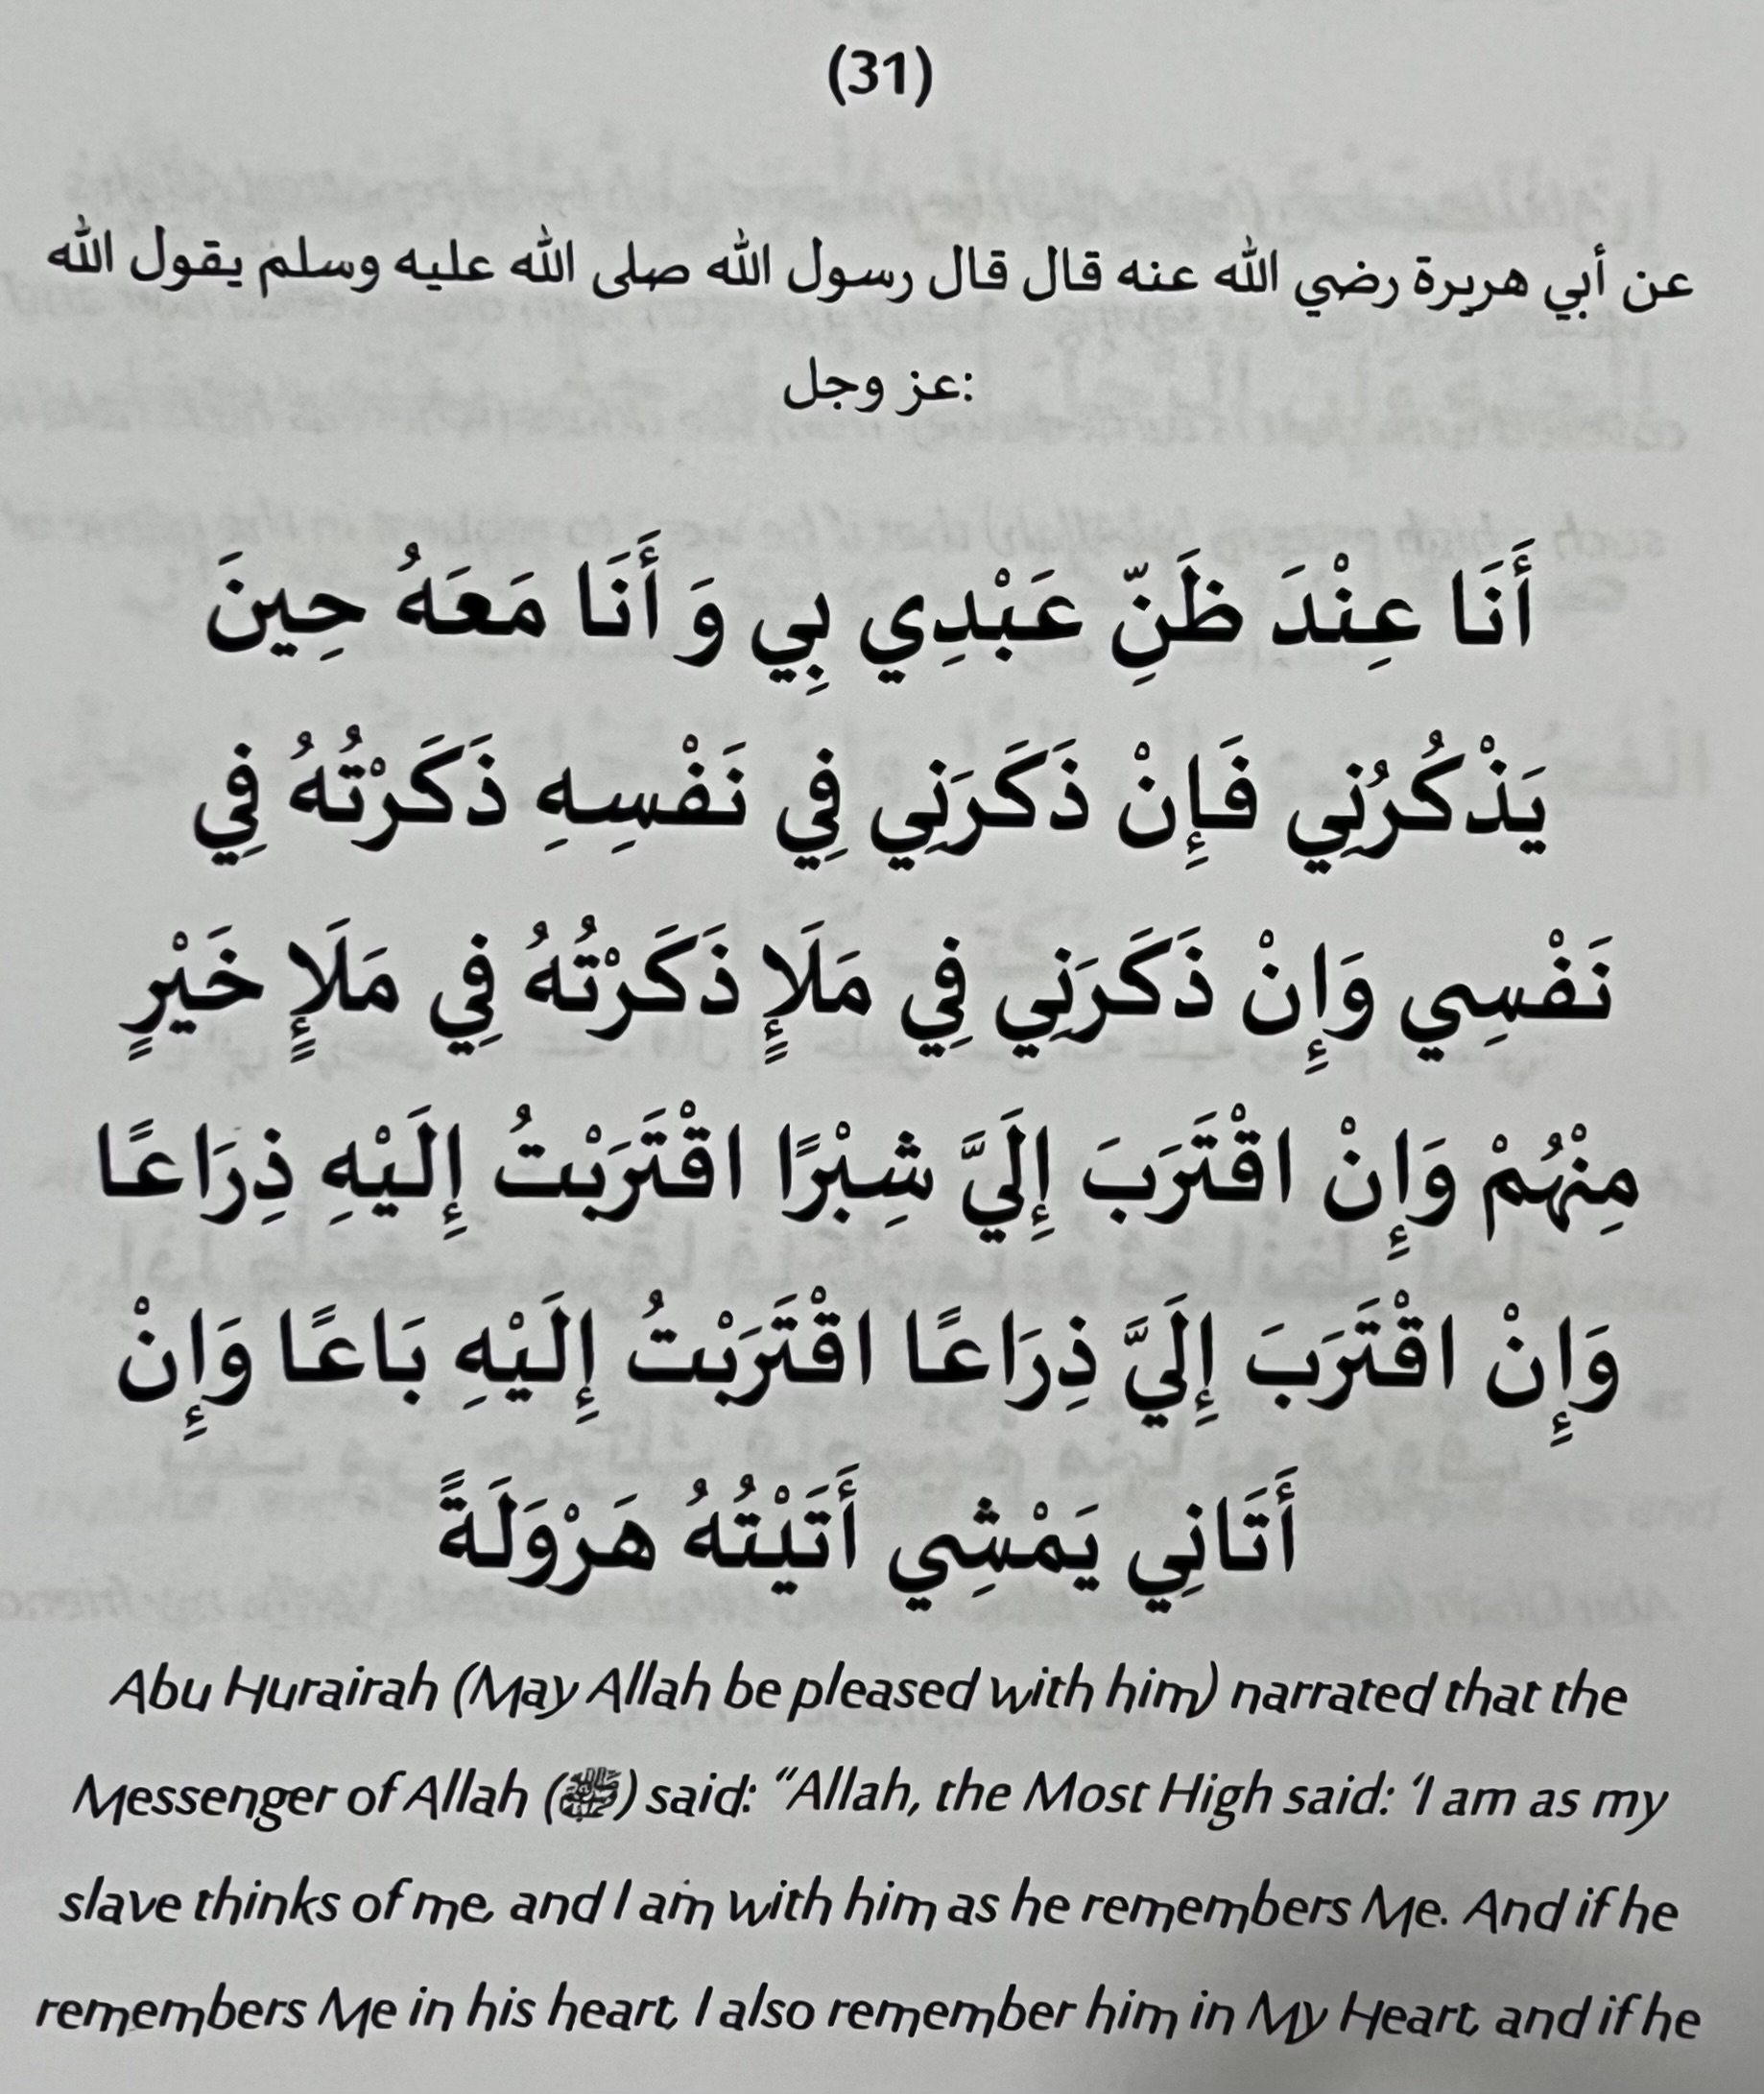 (31)
عن أبي هريرة رضي الله عنه قال قال رسول الله صلى الله عليه وسلم يقول الله
عز وجل:
أَنَا عِنْدَ ظَنِّ عَبْدِي بِي وَ أَنَا مَعَهُ حِينَ
يَذْكُرُنِي فَإِنْ ذَكَرَنِي فِي نَفْسِهِ ذَكَرْتُهُ فِي
نَفْسِي وَإِنْ ذَكَرَنِي فِي مَلَإٍ ذَكَرْتُهُ فِي مَلَإٍ خَيْرٍ
مِنْهُمْ وَإِنْ اقْتَرَبَ إِلَيَّ شِبْرًا اقْتَرَبْتُ إِلَيْهِ ذِرَاعًا
وَإِنْ اقْتَرَبَ إِلَيَّ ذِرَاعًا اقْتَرَبْتُ إِلَيْهِ بَاعًا وَإِنْ
أَتَانِي يَمْشِي أَتَيْتُهُ هَرْوَلَةً
Abu Hurairah (May Allah be pleased with him) narrated that the
Messenger of Allah (ﷺ) said: “Allah, the Most High said: ‘I am as my
slave thinks of me, and I am with him as he remembers Me. And if he
remembers Me in his heart, I also remember him in My Heart, and if he